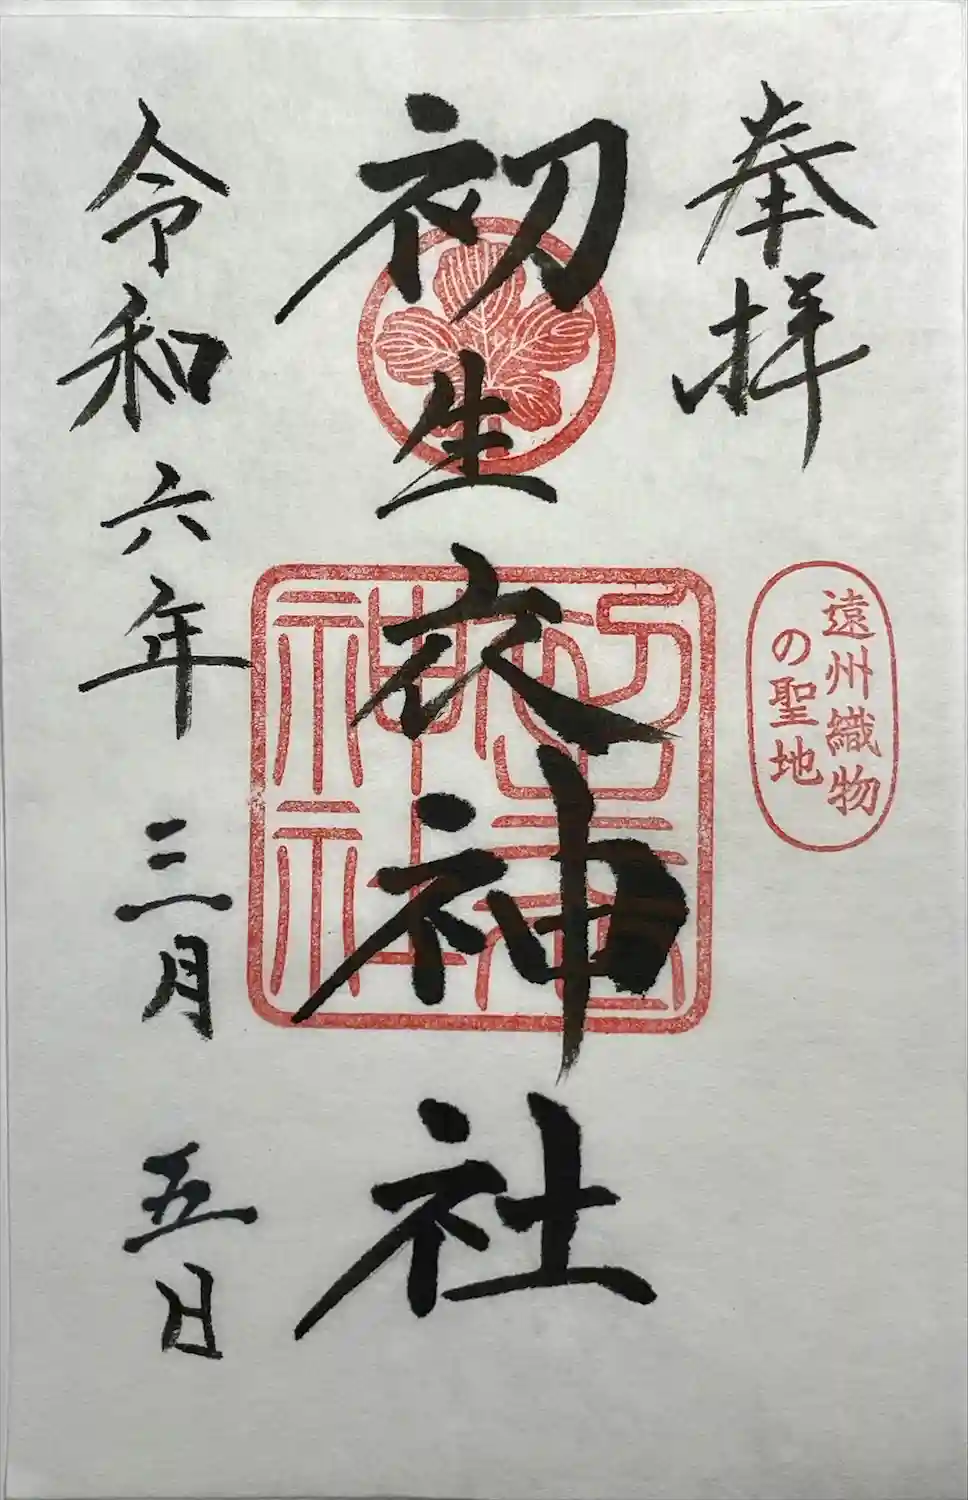 奉拝
遠州織物
の聖地
初生衣神社
初生衣神社
令和六年三月五日